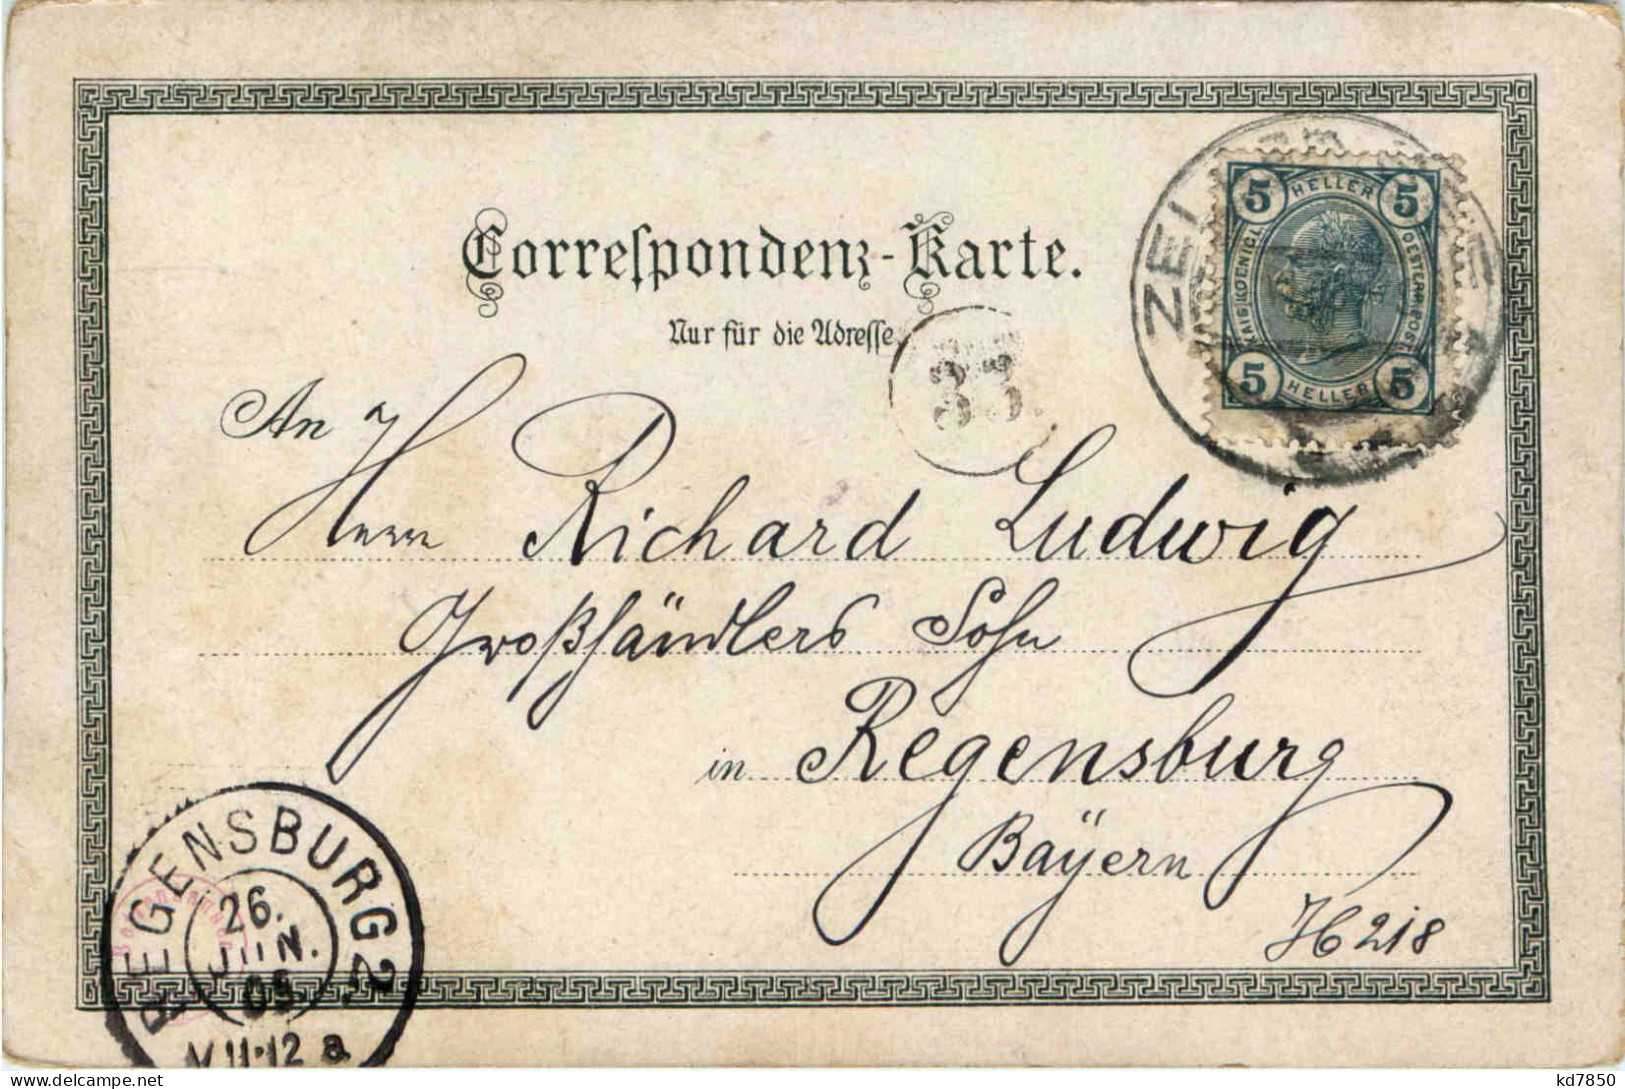 Correſpondenz-Karte.
Nur für die Adreſſe.
5 HELLER 5
KAIS. KOENIGL. OESTERR. POST
5 HELLER 5
ZELL
33
An
Herrn Richard Ludwig
Großhändlers Sohn
in Regensburg
Bayern
H218
REGENSBURG 2.
26.
JUN.
05
VII·12 a
kd7850